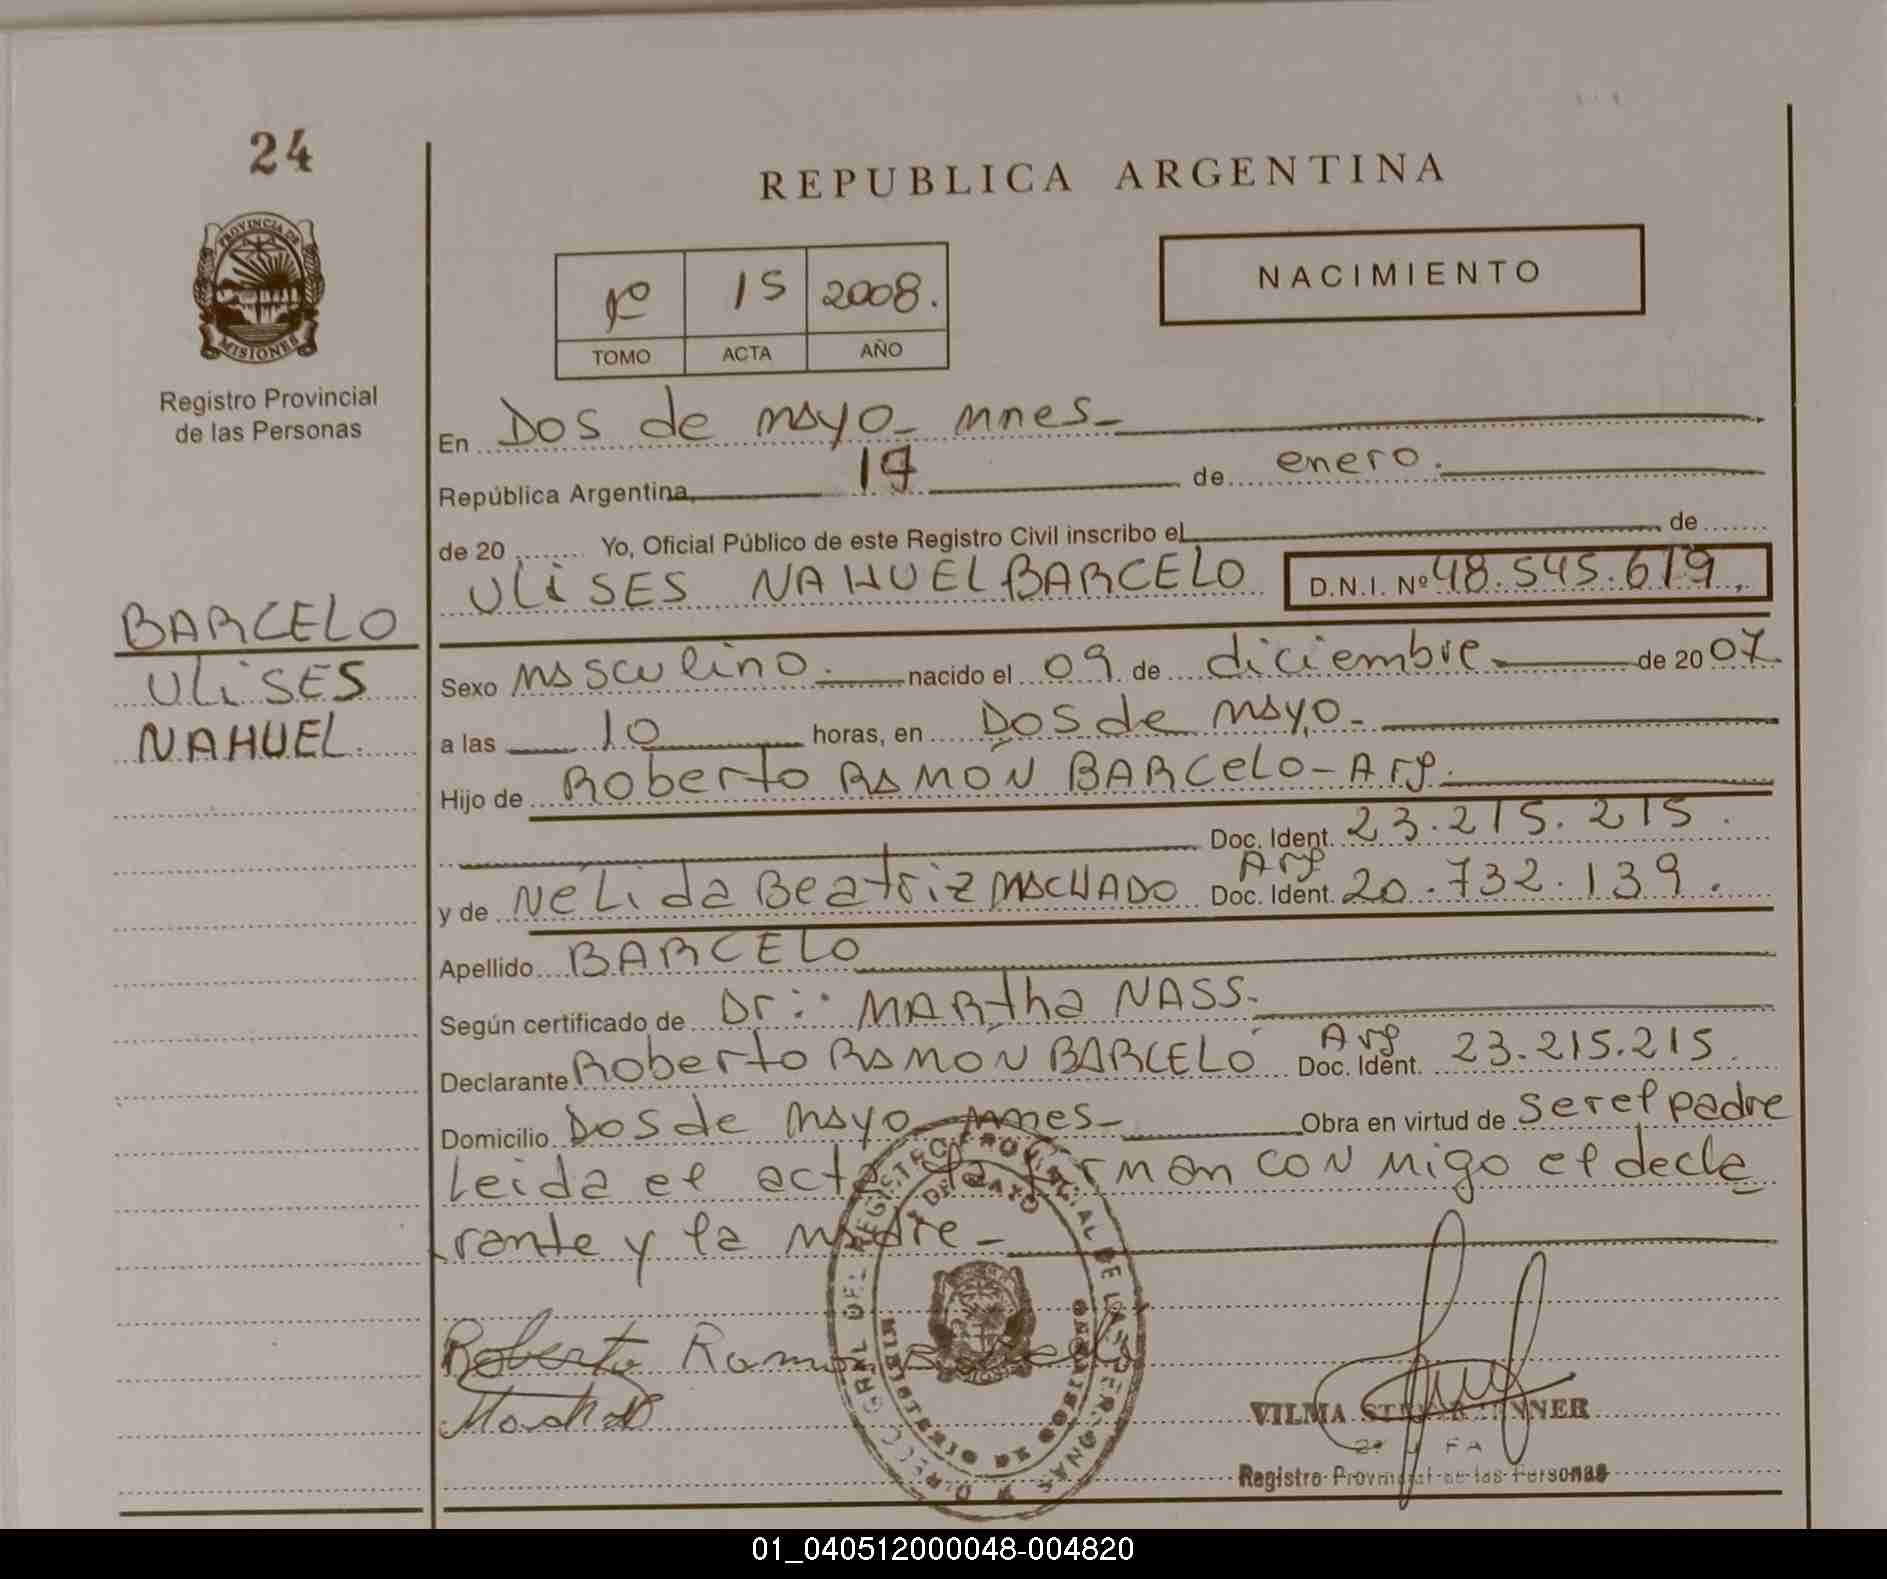 24
REPUBLICA ARGENTINA
PROVINCIA DE
MISIONES
Registro Provincial
de las Personas
1º 15 2008.
TOMO ACTA AÑO
NACIMIENTO
En Dos de mayo - mnes -
República Argentina, 17 de enero.
de 20 ....... Yo, Oficial Público de este Registro Civil inscribo el de .......
ULISES NAHUEL BARCELO D.N.I. Nº 48.545.619.
BARCELO
ULISES
NAHUEL.
Sexo masculino. nacido el 09 de diciembre de 2007
a las 10 horas, en Dos de mayo -
Hijo de Roberto RAMÓN BARCELO - Arg.
Doc. Ident. 23.215.215.
y de NéLida Beatriz MACHADO Arg Doc. Ident. 20.732.139.
Apellido BARCELO
Según certificado de Dr: MARtha NASS.
Declarante Roberto RAMÓN BARCELO Arg Doc. Ident. 23.215.215.
Domicilio Dos de mayo mnes - Obra en virtud de ser el padre
Leida el acta la firman con migo el decla
rante y la madre -
Roberto Ramon Barcelo
Machado
DIRECC. GRAL. DEL REGISTRO PROVINCIAL DE LAS PERSONAS
2 DE MAYO
MISIONES
VILMA
Registro Provincial de las Personas
01_040512000048-004820